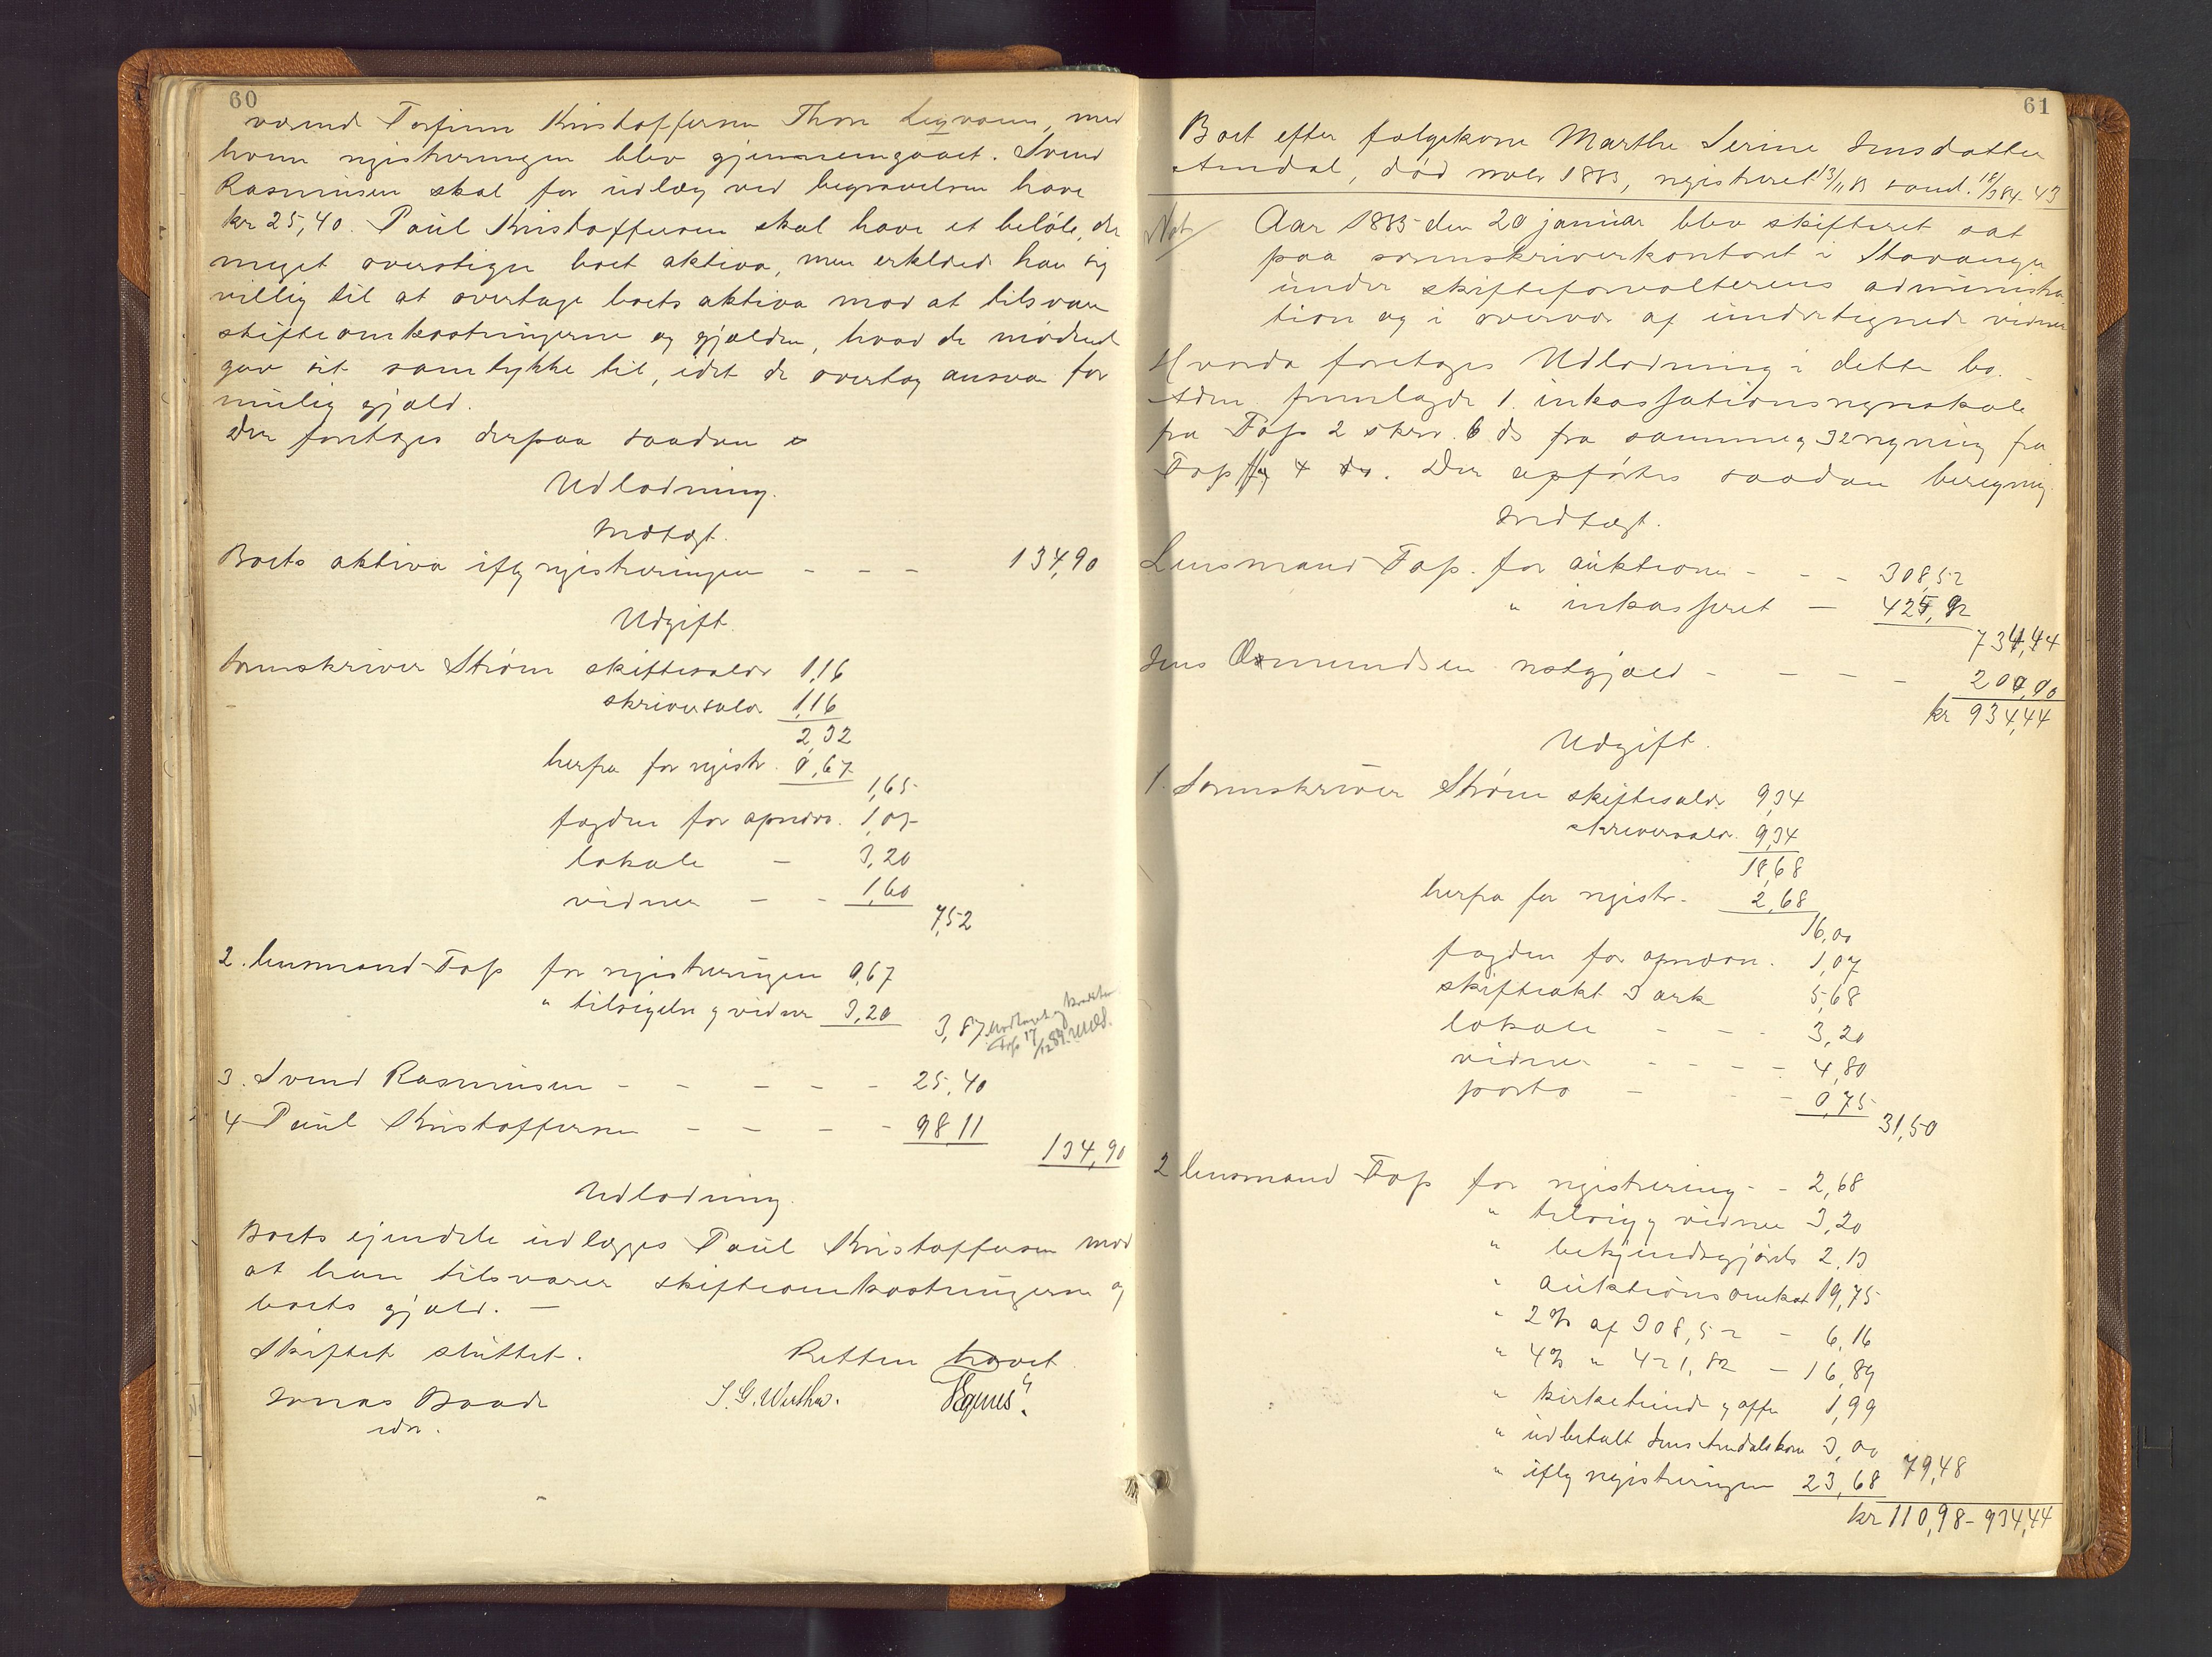 60
værende Torfinn Kristoffersen Thon Legvoun, med
hvem registreringen blev gjennemgaaet. Svend
Rasmussen skal for udlæg ved begravelsen have
kr 25,40. Paul Kristoffersen skal have et beløb, der
meget overstiger boets aktiva, men erklæred han sig
villig til at overtage boets aktiva mod at tilsvare
skifteomkostningerne og gjælden, hvad de mødende
gav sit samtykke til, idet de overtog ansvar for
mulig gjæld.
Der foretoges derpaa saadan
Udlodning.
Indtægt.
Boets aktiva iflg registreringen - - - 134,90
Udgift.
Sorenskriver Strøm skiftesaldr 1,16
skriversaldr. 1,16
2,32
herfra for registr. 0,67
1,65
fogden for opnævn. 1,07
lokale - 3,20
vidner - - 1,60
7,52
2. lensmand Fos for registreringen 0,67
" tilsigelse og vidner 3,20
3,87
3. Svend Rasmussen - - - - - 25,40
4 Paul Kristoffersen - - - - 98,11
134,90
Udlodning.
Boets eiendele udlægges Paul Kristoffersen mod
at han tilsvarer skifteomkostningerne og
boets gjæld. -
Skiftet sluttet. Retten hævet.
Jonas Baade
edsv.
61
Boet efter følgekone Marthe Serine Jensdatter
Aendal, død novbr 1883, registreret 13/11 83 saml. 18/1 84 - 43
Aar 1885 den 20 januar blev skifteret sat
paa sorenskriverkontoret i Stavanger
under skifteforvalterens administra-
tion og i overvær af undertegnede vidner
Hvorda foretoges Udlodning i dette bo.
Adm. fremlagde 1. inkassationsregnskab
fra Fos 2 skrv. 6 ds fra samme og 3 regning fra
Fos. Der opførtes saadan beregning
Indtægt.
Lensmand Fos. for auktionen - - - 308,52
" inkasseret - 425,92
734,44
Jens Osmundsen restgjæld - - - - 200,00
kr 934,44
Udgift.
1. Sorenskriver Strøm skiftesaldr 9,34
skriversaldr. 9,34
18,68
herfra for registr. 2,68
16,00
fogden for opnævn. 1,07
skifteakt 3 ark 5,68
lokale - - - 3,20
vidner - - - - 4,80
porto - - - 0,75
31,50
2 lensmand Fos for registrering - - 2,68
" tilsig og vidner 3,20
" bekjendtgjørels 2,13
" auktionsomkost 19,75
" 2% af 308,52 - 6,16
" 4% " 421,82 - 16,89
" kirketiende og offer 1,99
" udbetalt Jens Aendals kone 3,00
" iflg registreringen 23,68 79,48
kr 110,98 - 934,44